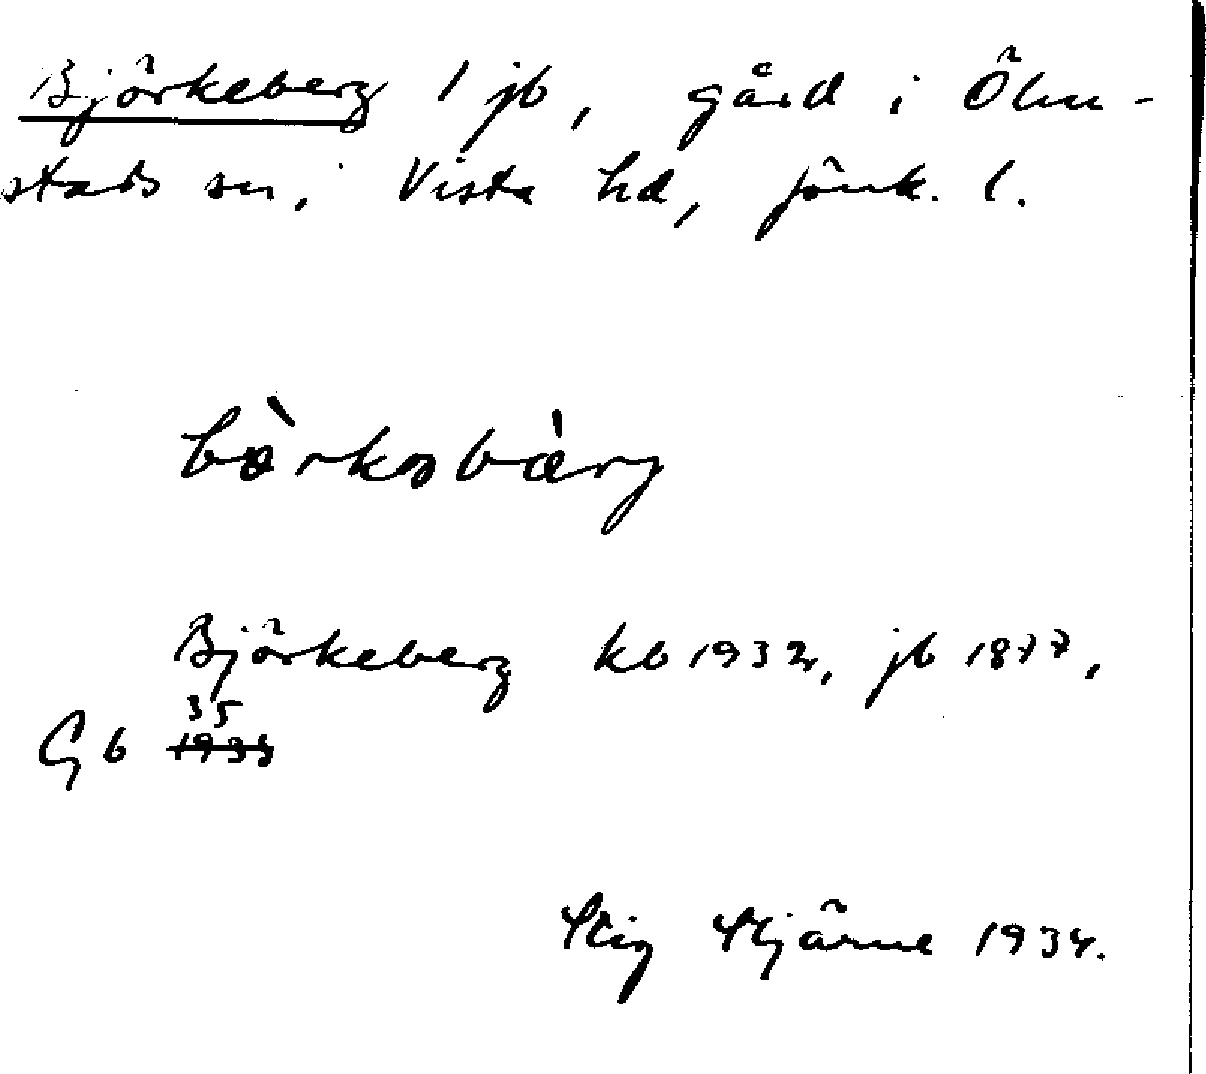 Björkeberg 1 jb, gård i Ölm-
stads sn, Vista hd, Jönk. l.
Björkeberg kb 1932, jb 1877,
35
Gb 1935
Stig Stjärne 1934.